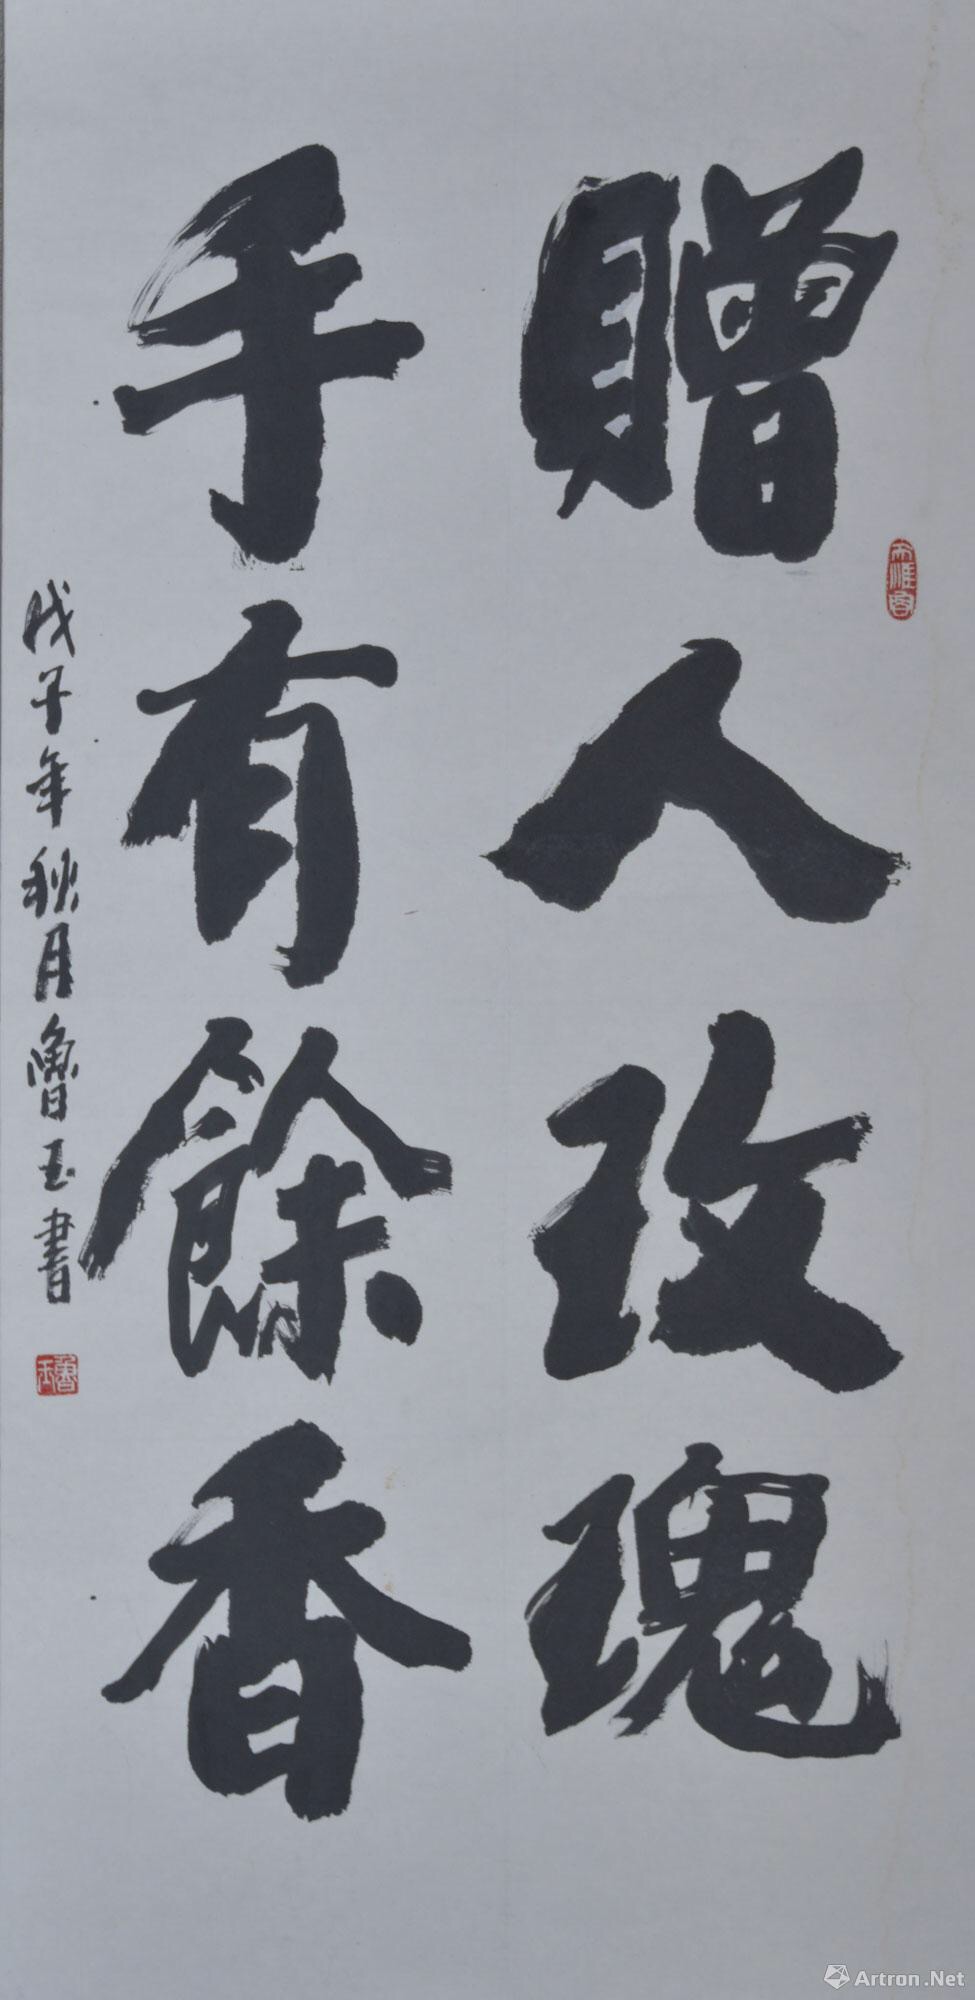 贈人玫瑰
手有餘香
戊子年秋月魯玉書
魯玉
Artron.Net